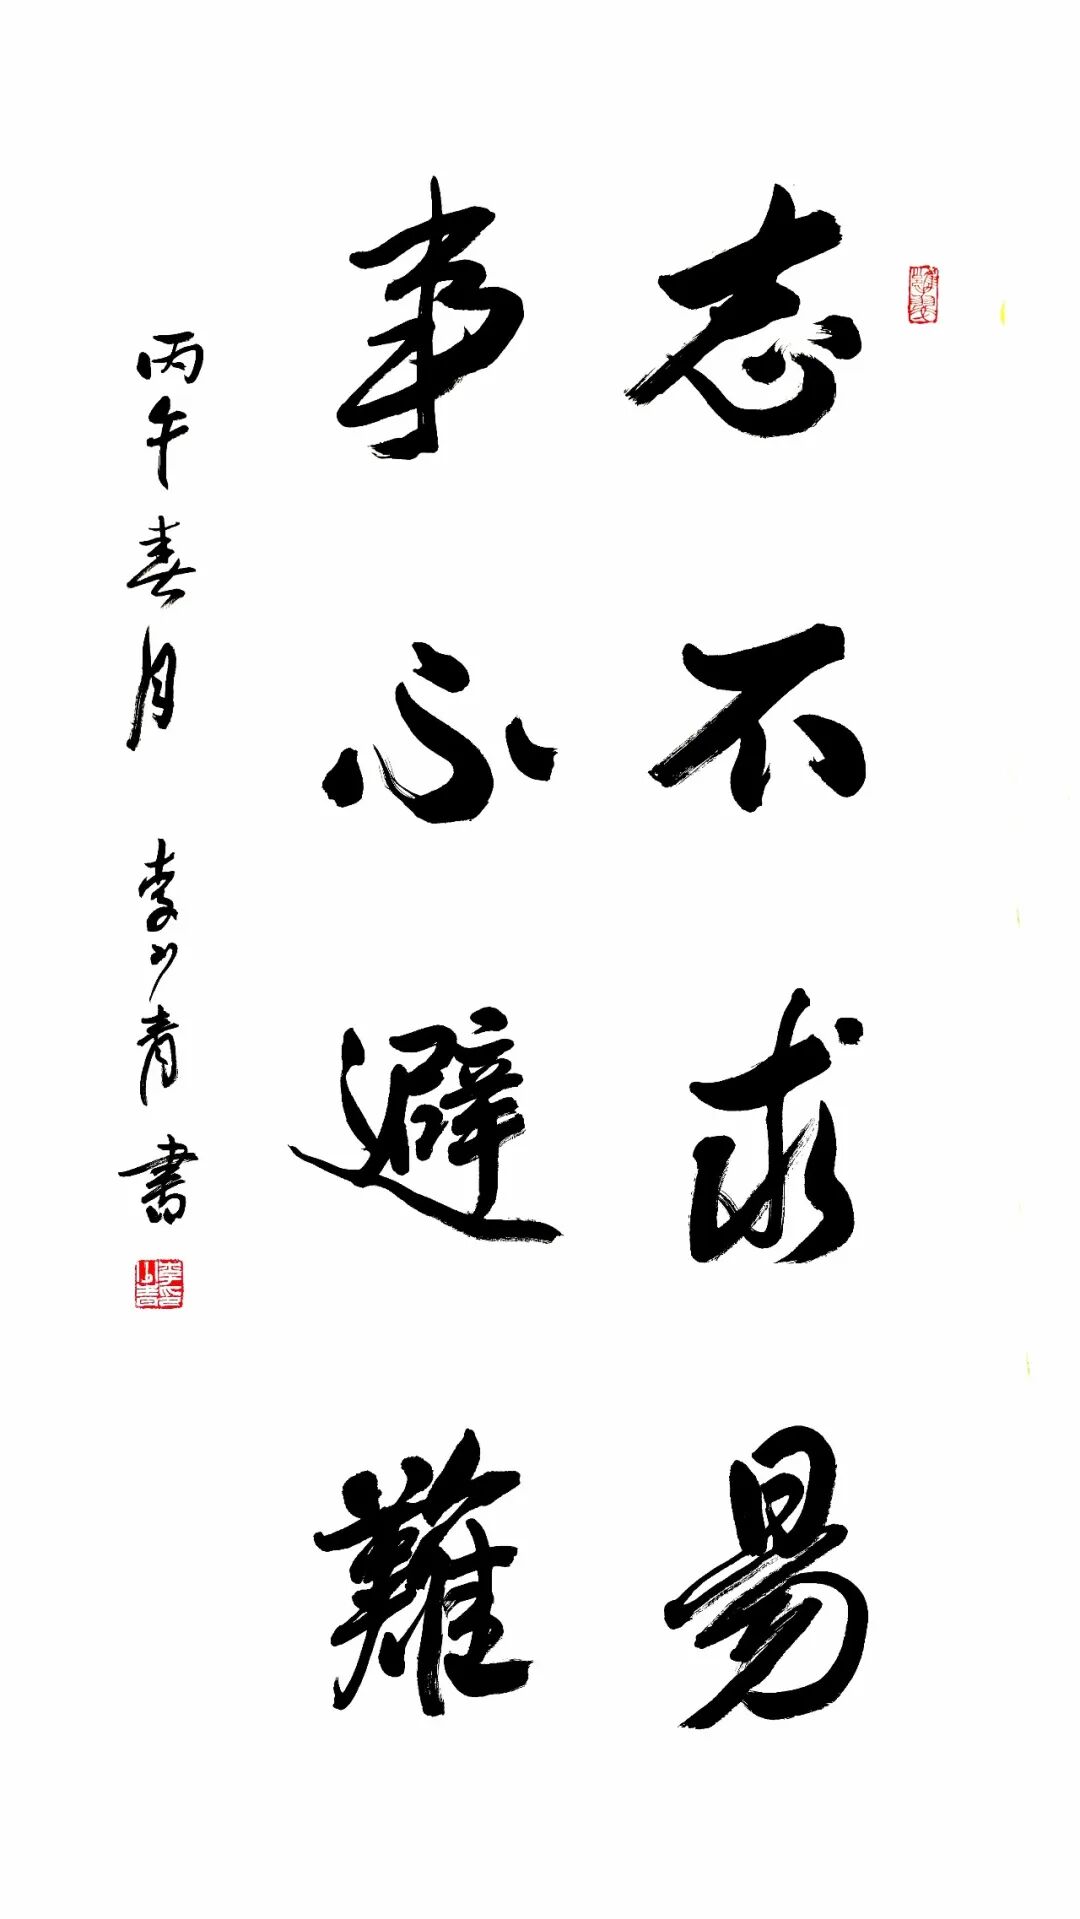 志不求易
事不避難
丙午春月 李少青書